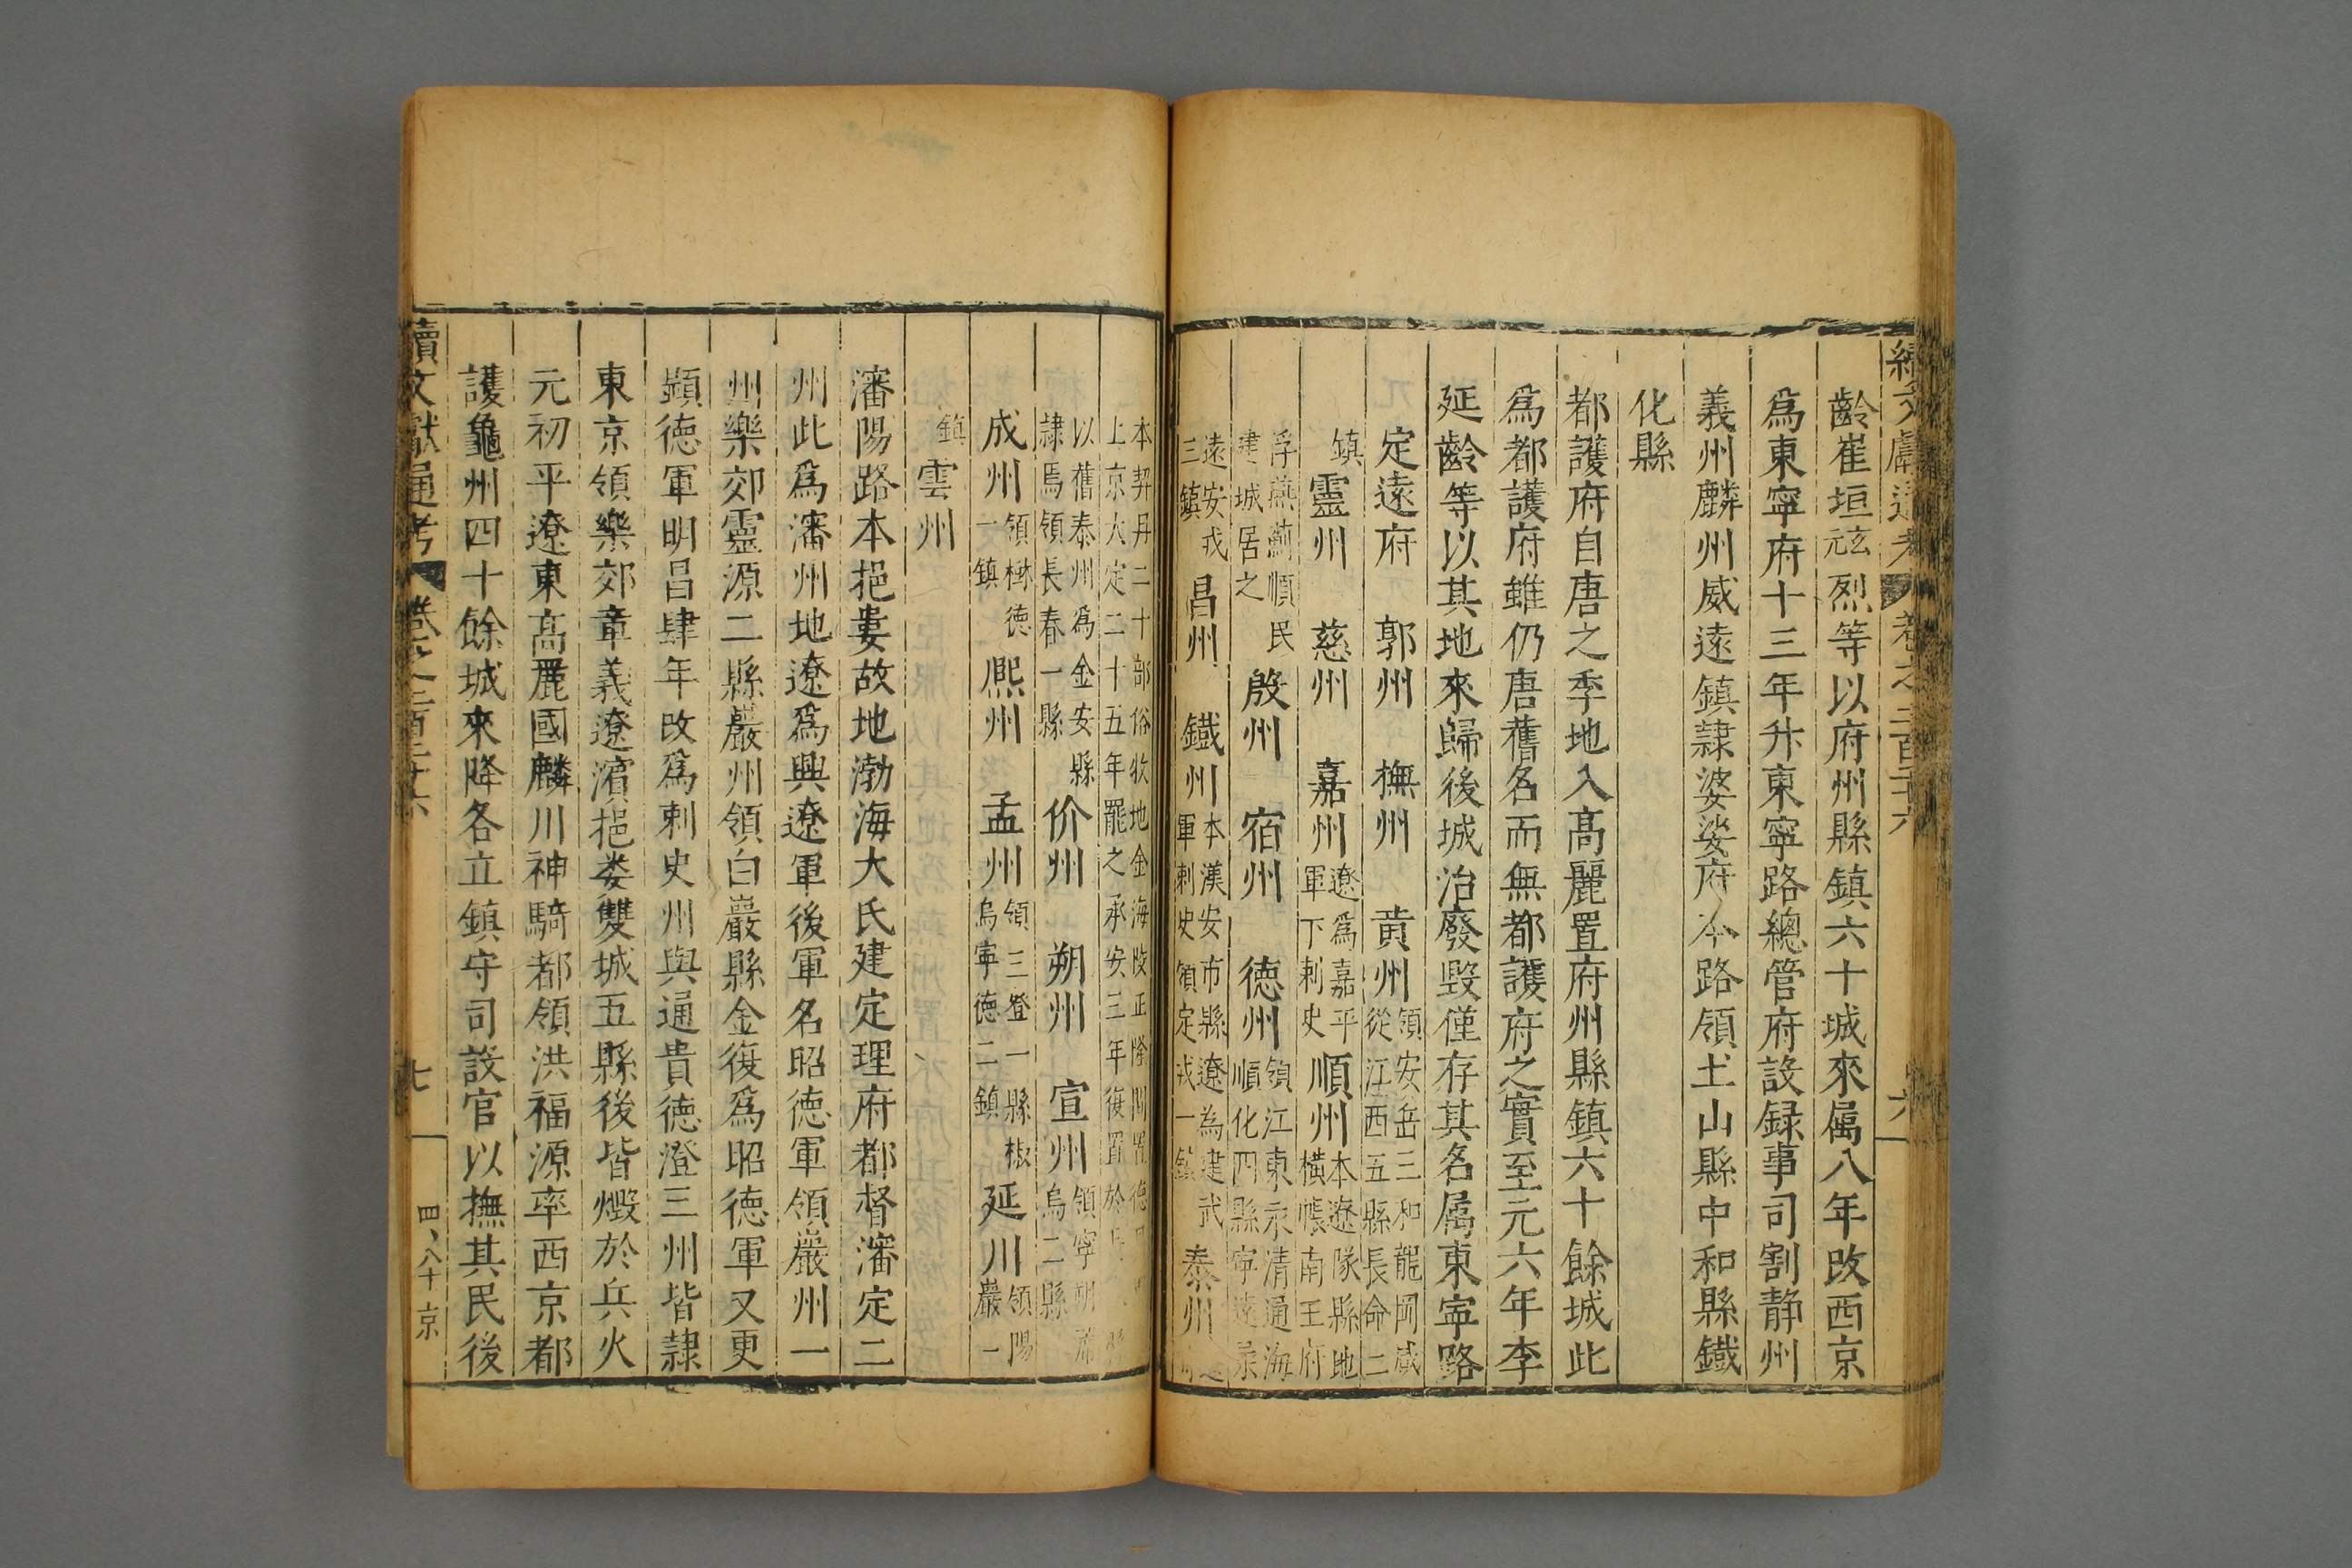 續文獻通考 卷之二百二十六 六
齡崔垣玄元烈等以府州縣鎮六十城來屬八年改西京
爲東寧府十三年升東寧路總管府設録事司割靜州
義州麟州威遠鎮隷婆娑府本路領土山縣中和縣鐵
化縣
都護府自唐之季地入高麗置府州縣鎮六十餘城此
爲都護府雖仍唐舊名而無都護府之實至元六年李
延齡等以其地來歸後城治廢毀僅存其名屬東寧路
定遠府 郭州 撫州 黄州領安岳三和龍岡咸從江西五縣長命二
鎮靈州 慈州 嘉州遼爲嘉平軍下刺史順州本遼隊縣地橫帳南王府
浮燕薊順民建城居之殷州 宿州 德州領江東永清通海順化四縣寧遠
遠安戎三鎮昌州 鐵州本漢安市縣遼為建武軍刺史領定戎一鎮泰州
本契丹二十部俗牧地金海陵正隆間置德昌上京大定二十五年罷之承安三年復置於
以舊泰州為金安縣隷焉領長春一縣价州 朔州 宣州領寧朔烏二縣
成州領樹德一鎮熈州 孟州領三登一縣椒烏寧德二鎮延川領陽嚴一
鎮雲州
瀋陽路本挹婁故地渤海大氏建定理府都督瀋定二
州此爲瀋州地遼爲興遼軍後軍名昭德軍領巖州一
州樂郊靈源二縣巖州領白巖縣金復爲昭德軍又更
顯德軍明昌肆年改爲刺史州與通貴德澄三州皆隷
東京領樂郊章義遼濱挹娄雙城五縣後皆燬於兵火
元初平遼東高麗國麟川神騎都領洪福源率西京都
護龜州四十餘城來降各立鎮守司設官以撫其民後
續文獻通考 卷之二百二十六 七 四八十 京